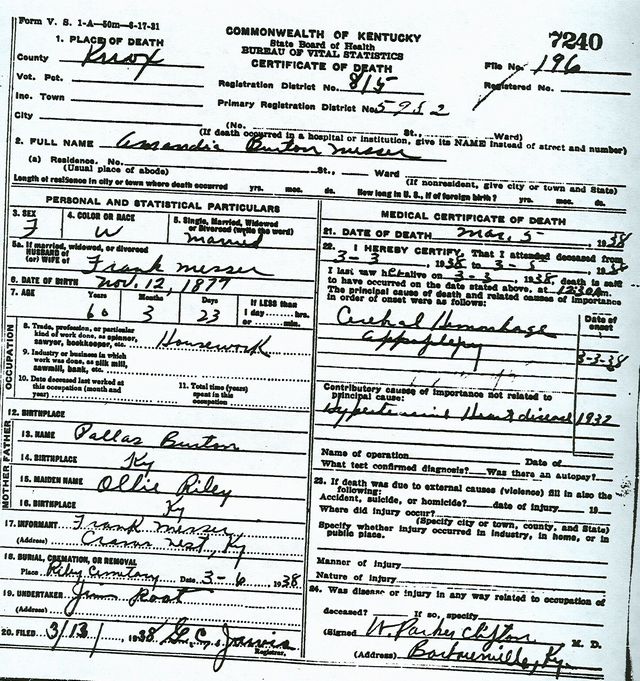 Form V. S. 1-A—50m—6-17-31
COMMONWEALTH OF KENTUCKY
State Board of Health
BUREAU OF VITAL STATISTICS
CERTIFICATE OF DEATH
7240
1. PLACE OF DEATH
County Knox
File No. 196
Vot. Pct.
Registration District No. 815
Registered No.
Inc. Town
Primary Registration District No. 5952
City
(No. St., Ward)
(If death occurred in a hospital or institution, give its NAME instead of street and number)
2. FULL NAME Burton Messer
(a) Residence. No. St., Ward
(Usual place of abode) (If nonresident, give city or town and State)
Length of residence in city or town where death occurred yrs. mos. ds. How long in U. S., if of foreign birth? yrs. mos. ds.
PERSONAL AND STATISTICAL PARTICULARS
3. SEX
F
4. COLOR OR RACE
W
5. Single, Married, Widowed
or Divorced (write the word)
Married
5a. If married, widowed, or divorced
HUSBAND of
(or) WIFE of Frank Messer
6. DATE OF BIRTH Nov. 12, 1877
7. AGE Years Months Days If LESS than
60 3 23
1 day hrs.
or min.
OCCUPATION
8. Trade, profession, or particular
kind of work done, as spinner,
sawyer, bookkeeper, etc. Housework
9. Industry or business in which
work was done, as silk mill,
sawmill, bank, etc.
10. Date deceased last worked at
this occupation (month and
year)
11. Total time (years)
spent in this
occupation
12. BIRTHPLACE
FATHER
13. NAME Dallas Burton
14. BIRTHPLACE Ky
MOTHER
15. MAIDEN NAME Ollie Riley
16. BIRTHPLACE Ky
17. INFORMANT Frank Messer
(Address) Nest, Ky
18. BURIAL, CREMATION, OR REMOVAL
Place Riley Cemetery Date 3-6, 1938
19. UNDERTAKER Root
(Address)
20. FILED 3/13, 1938 G. C. Jarvis
Registrar.
MEDICAL CERTIFICATE OF DEATH
21. DATE OF DEATH Mar. 5, 1938
22. I HEREBY CERTIFY, That I attended deceased from
3-3, 1938 to 3-5, 1938
I last saw her alive on 3-3, 1938, death is said
to have occurred on the date stated above, at 12:30 A m.
The principal cause of death and related causes of importance
in order of onset were as follows:
Date of
onset
Cerebral Hemorrhage
Appoplexy 3-3-38
Contributory causes of importance not related to
principal cause:
Hypertensive Heart disease 1932
Name of operation Date of
What test confirmed diagnosis? Was there an autopsy?
23. If death was due to external causes (violence) fill in also the
following:
Accident, suicide, or homicide? date of injury 19
Where did injury occur?
(Specify city or town, county, and State)
Specify whether injury occurred in industry, in home, or in
public place.
Manner of injury
Nature of injury
24. Was disease or injury in any way related to occupation of
deceased? If so, specify
(Signed) W. Parker Clifton M. D.
(Address) Barbourville, Ky.